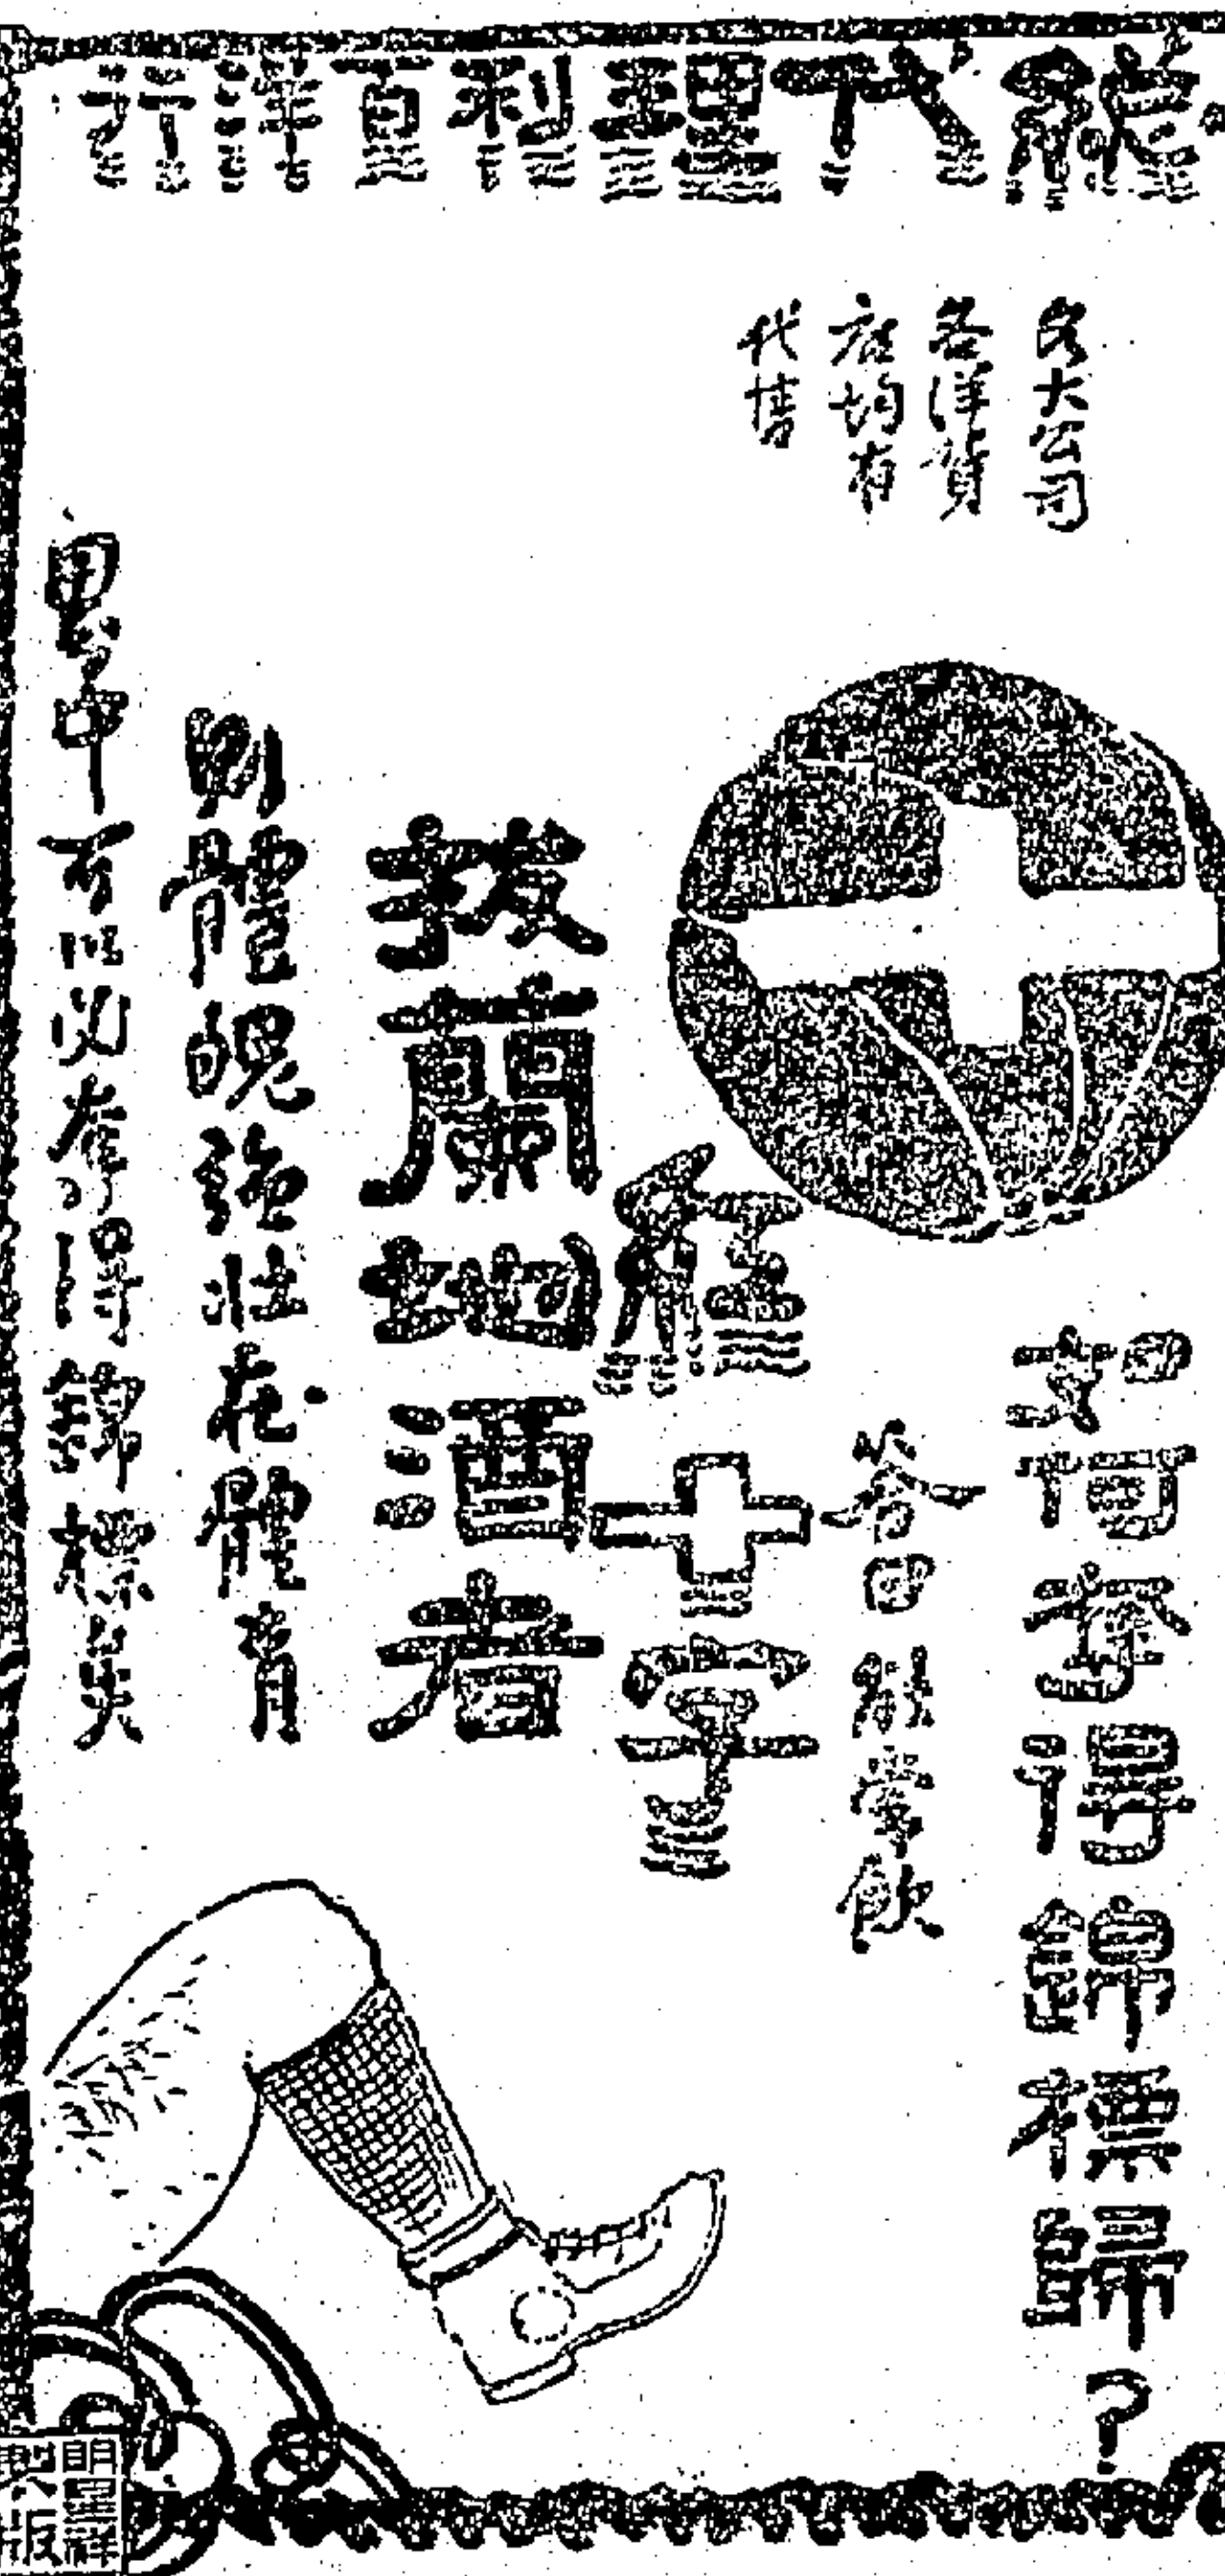 總代理利百洋行
各大公司
各洋貨
店均有
代售
如何奪得錦標歸?
答曰能常飲
紅十字
拔蘭地酒者
則體魄強壯在體育
界中可以必奪得錦標矣
明星
製版